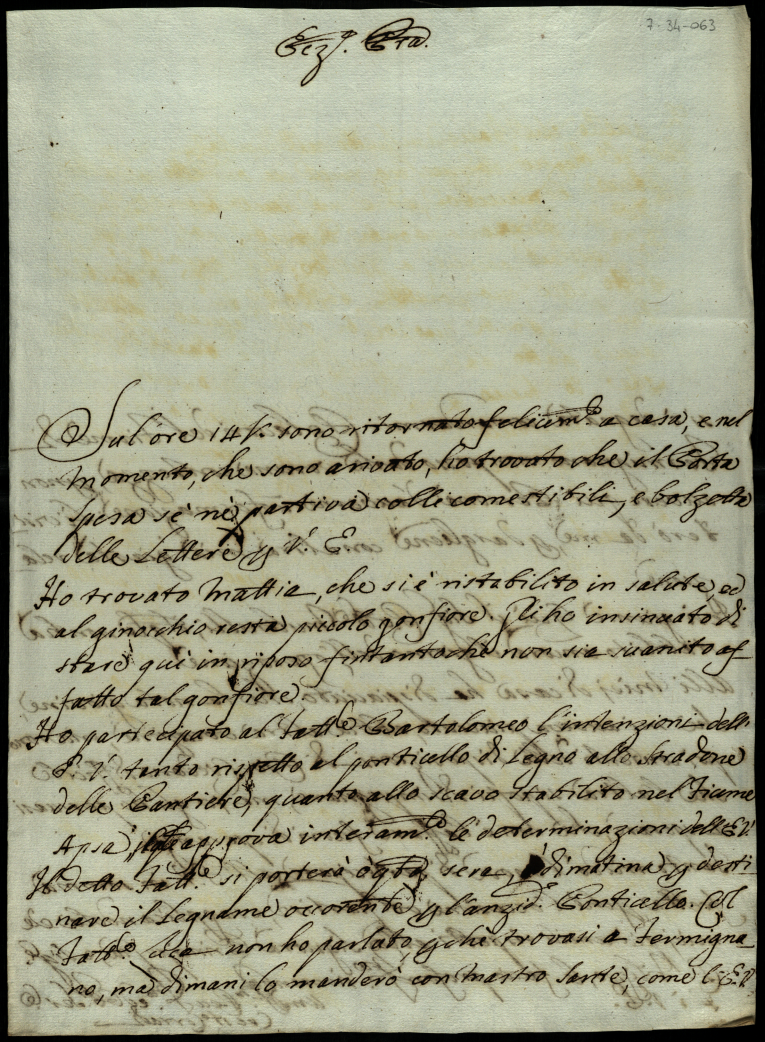 7-34-063
Ecz.ª Pra.
Sul'ore 14 /. sono ritornato felicem.e a casa, e nel
momento, che sono arivato, hò trovato che il Porta
spesa sè nè partiva colle comestibili, e bolzetta
delle Lettere p V. E
Ho trovato Mattia, che si è ristabilito in salute, ed
al ginocchio resta piccolo gonfiore. Gli ho insinuato di
stare qui in riposo fintantoche non sia svanito af-
fatto tal gonfiore.
Ho partecipato al Fatt.e Bartolomeo l'intenzioni dell'
E. V. tanto rispetto al ponticello di Legno allo Stradone
delle Cantiere, quanto allo scavo stabilito nel Fiume
Apsa, approva interam.e le determinazioni dell'E.V.
Il detto Fatt.e si porterà ò sera, ò dimatina p desti
nare il Legname occorente p l'anzid.o Ponticello. Col
Fatt.e non ho parlato, p chè trovasi a Fermigna
no, ma dimani lo manderò con Mastro Sante, come l'E.V.